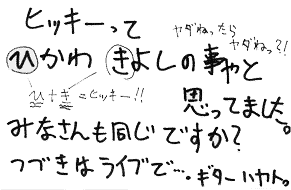 ヒッキーって
ヤダねったら
ヤダねっ?!
ひかわ きよしの事やと
ひ+き=ヒッキー!!
思ってました。
みなさんも同じですか?
つづきはライブで…。ギターハヤト。